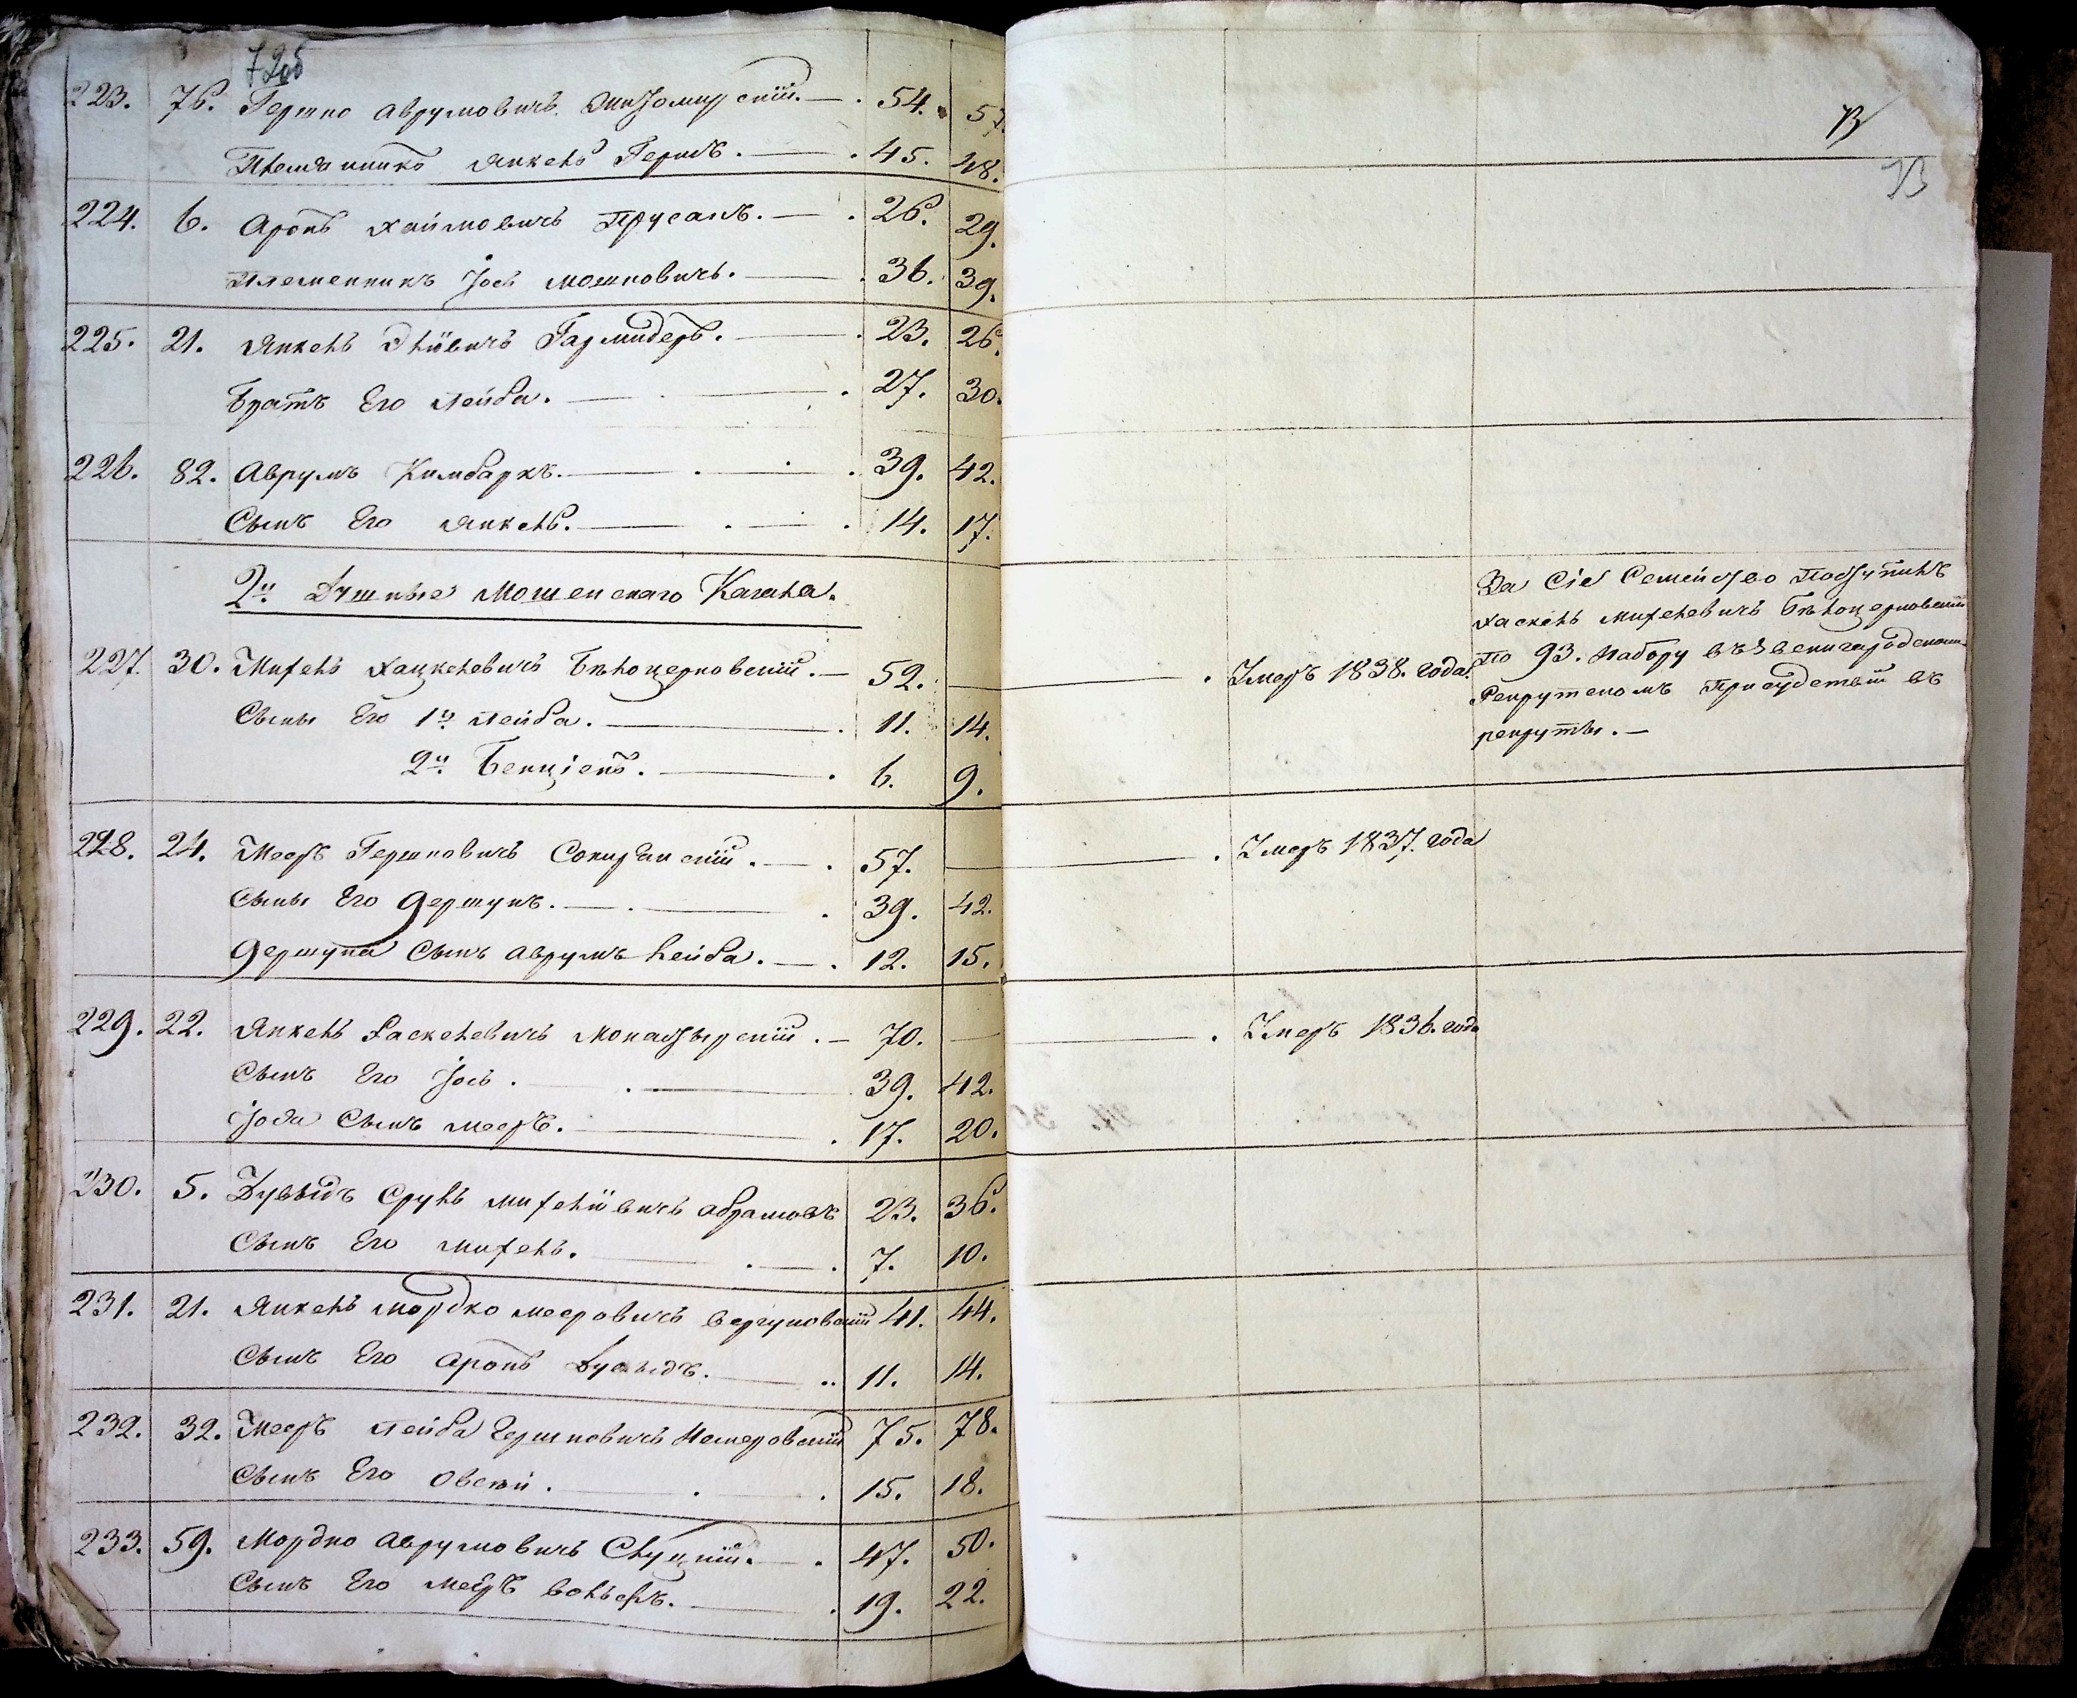 72об
223. 76. Гершко Аврумовичъ Житомирскій. — 54. 57.
Племянникъ Янкель Герш. — 45. 48.
224. 6. Аронъ Хаймовичъ Прусакъ. — 26. 29.
Племенникъ Іось Мошковичъ. — 36. 39.
225. 21. Янкель Элiовичъ Гармидеръ. — 23. 26.
Братъ Его Лейба. — 27. 30.
226. 82. Аврумъ Кимбаркъ. — 39. 42.
Сынъ Его Янкель. — 14. 17.
2й Душные Мошенскаго Кагала.
227. 30. Михель Хацкелевичъ Бѣлоцерковскій. — 52.
Сыны Его 1й Лейба. — 11. 14.
2й Бенціенъ. — 6. 9.
228. 24. Мееръ Гершковичъ — 57.
Сыны Его Гершунъ. — 39. 42.
Гершуна Сынъ Аврумъ Лейба. — 12. 15.
229. 22. Янкель Хаскелевичъ Монастырскій. — 70.
Сынъ Его Іось. — 39. 42.
Іося Сынъ Мееръ. — 17. 20.
230. 5. Дувыдъ Сруль Михелiовичъ Абрамовъ 23. 36.
Сынъ Его Михель. — 7. 10.
231. 21. Янкель Мордко Мееровичъ Вергуновскій 41. 44.
Сынъ Его Аронъ Дувыдъ. — 11. 14.
232. 32. Мееръ Лейба Гершковичъ Немеровскій 75. 78.
Сынъ Его Овсей. 15. 18.
233. 59. Мордко Аврумовичъ Слуцкій. — 47. 50.
Сынъ Его Мееръ Вольфъ. — 19. 22.
73
73
За Сіе Семейство Поступилъ
Хаскель Михелевичъ Бѣлоцерковскій
По 93. Набору въ Звенигородскомъ
Рекрутскомъ Присудствіи въ
рекруты. —
— . Умеръ 1838. года.
— . Умеръ 1837. года
— . Умеръ 1836. года